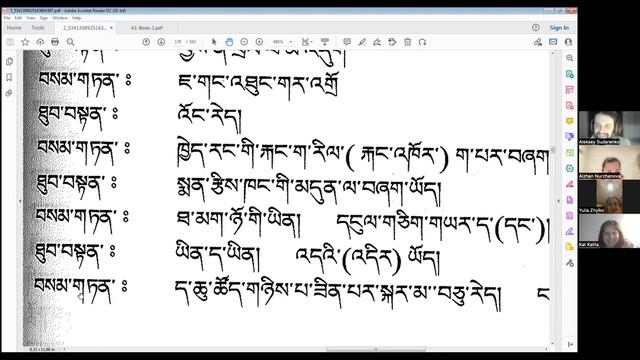 2_5341308925163604387.pdf - Adobe Acrobat Reader DC (32-bit)
File Edit View Sign Window Help
Home Tools 2_5341308925163... × A1-Book-1.pdf
བསམ་གཏན་ ༔ ཇ་གང་འཐུང་གར་འགྲོ
ཐུབ་བསྟན་ ༔ འོང་རེད།
བསམ་གཏན་ ༔ ཁྱེད་རང་གི་རྐང་ག་རིལ་( རྐང་འཁོར་) ག་པར་བཞག
ཐུབ་བསྟན་ ༔ སྨན་རྩིས་ཁང་གི་མདུན་ལ་བཞག་ཡོད།
བསམ་གཏན་ ༔ ཐ་མག་ཉོ་གི་ཡིན། དངུལ་གཅིག་གཡར་ད་(དང་)།
ཐུབ་བསྟན་ ༔ ཡིན་ད་ཡིན། འདའི་(འདིར) ཡོད།
བསམ་གཏན་ ༔ ད་ཆུ་ཚོད་གཉིས་པ་ཟིན་པར་སྐར་མ་བཅུ་རེད། ང
Aleksey Sudarenko
Aizhan Nurzhanova
Yulia Zhylko
Kat Kalita